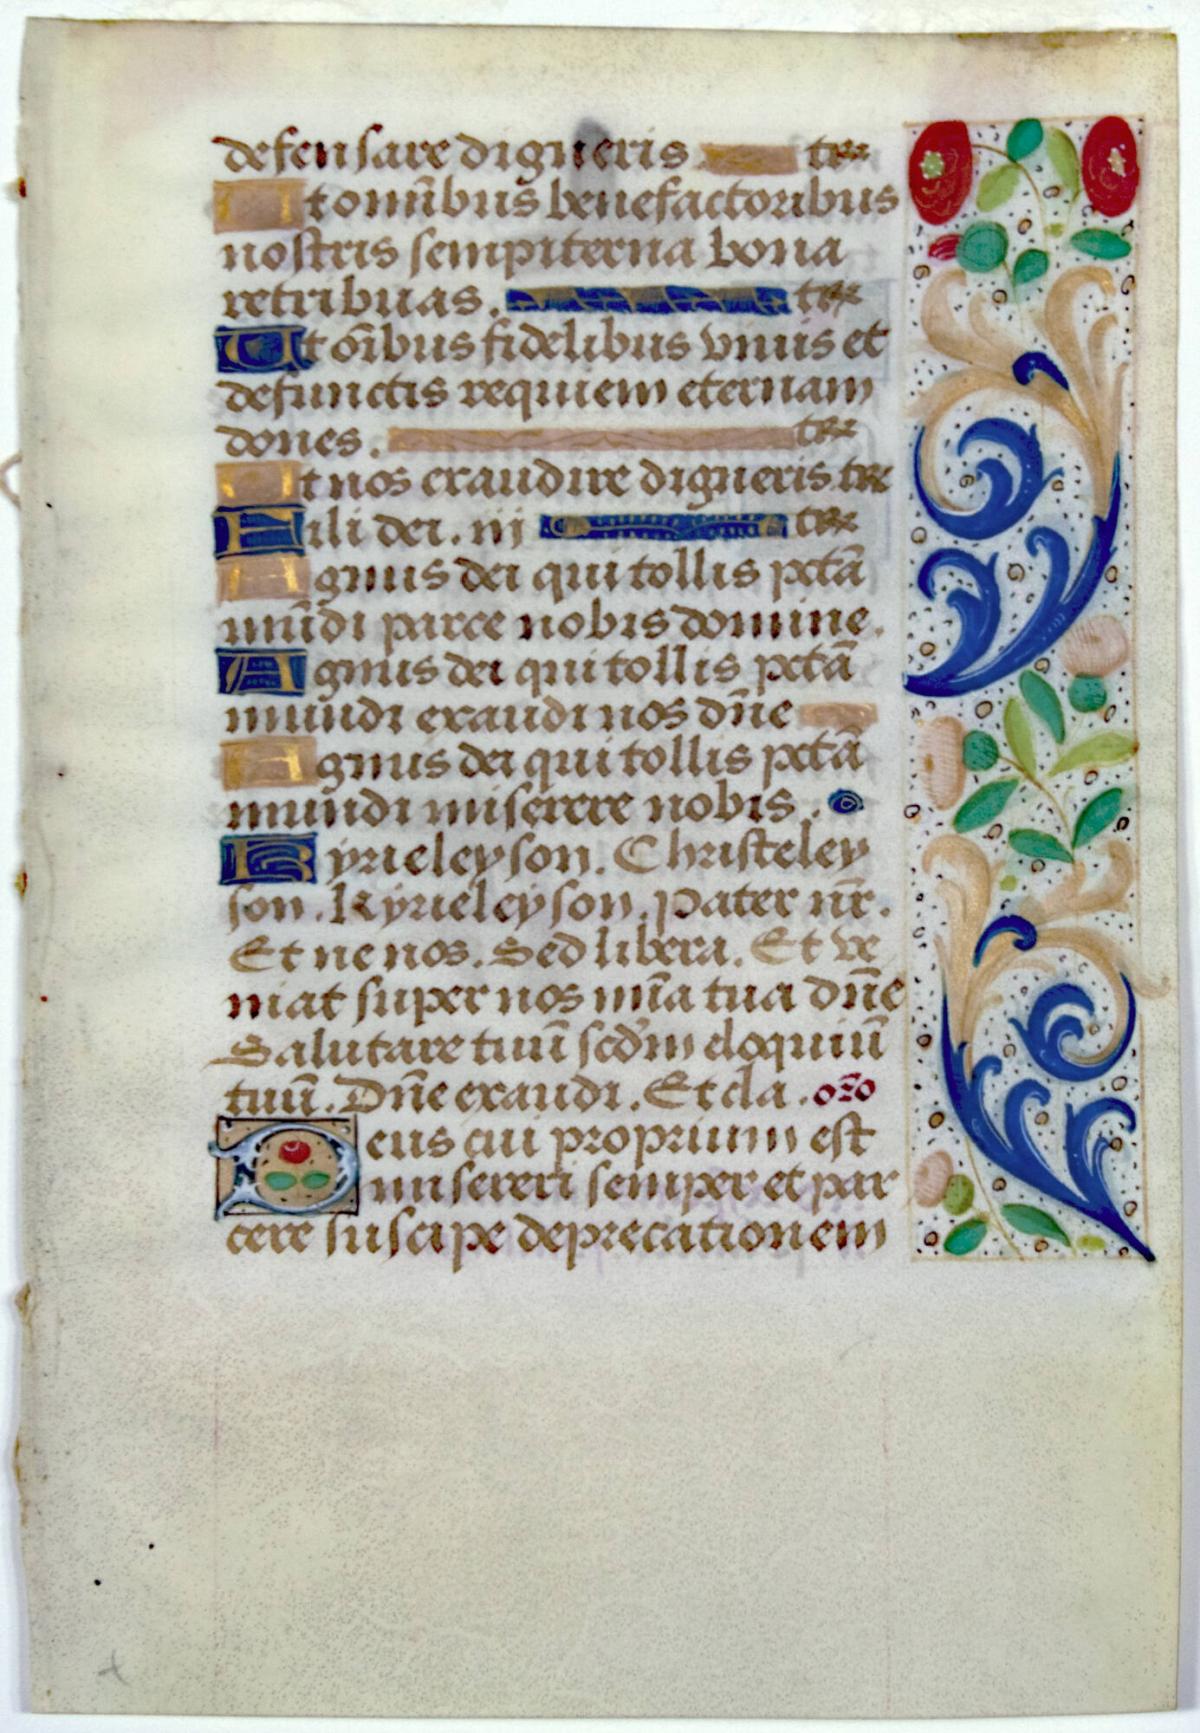 defensare digneris te r̃
Ut omībus benefactoribus
nostris sempiterna bona
retribuas. te r̃
Ut oībus fidelibus viuis et
defunctis requiem eternam
dones. te r̃
Ut nos exaudire digneris te r̃
Fili dei. iij te r̃
Agnus dei qui tollis pctā
mūdi parce nobis domine.
Agnus dei qui tollis pctā
mundi exaudi nos dñe
Agnus dei qui tollis pctā
mundi miserere nobis.
Kyrieleyson. Christeley
son. Kyrieleyson. Pater nr̃.
Et ne nos. Sed libera. Et ve
niat super nos mīa tua dñe
Salutare tuū scdm eloquiū
tuū. Dñe exaudi. Et cla. oro
Deus cui proprium est
misereri semper et par
cere suscipe deprecationem